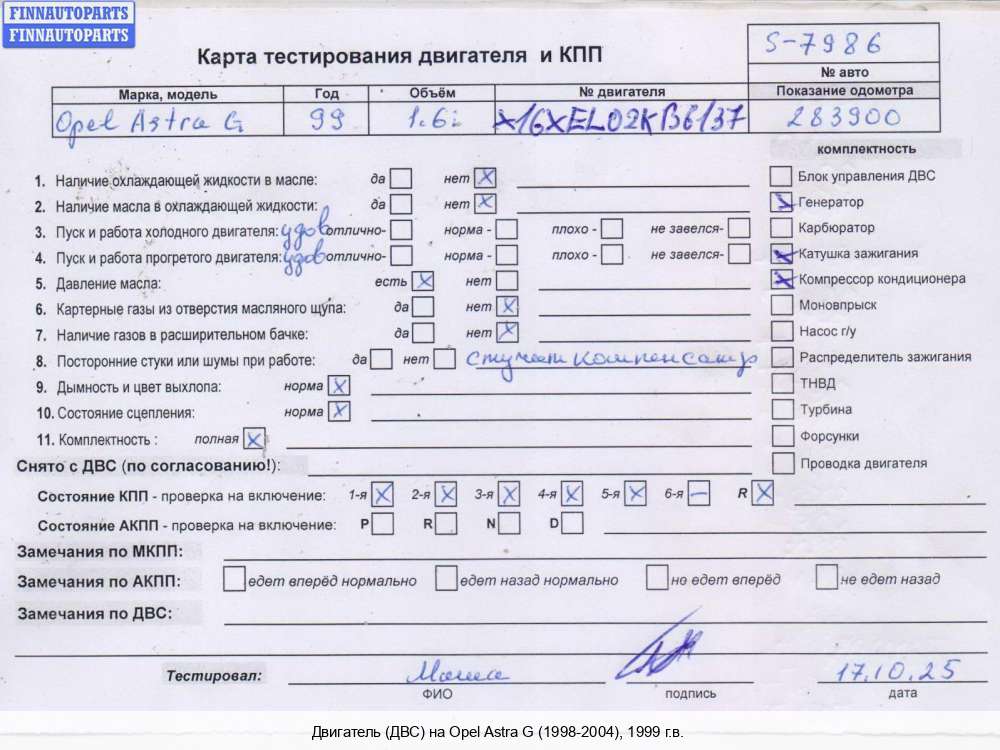 FINNAUTOPARTS
FINNAUTOPARTS
Карта тестирования двигателя и КПП
S-7986
№ авто
Марка, модель Год Объём № двигателя Показание одометра
Opel Astra G 99 1.6i X16XEL02KB6137 283900
комплектность
1. Наличие охлаждающей жидкости в масле: да нет X Блок управления ДВС
2. Наличие масла в охлаждающей жидкости: да нет X Генератор
3. Пуск и работа холодного двигателя: удов отлично- норма - плохо - не завелся- Карбюратор
4. Пуск и работа прогретого двигателя: удов отлично- норма - плохо - не завелся- Катушка зажигания
5. Давление масла: есть X нет Компрессор кондиционера
6. Картерные газы из отверстия масляного щупа: да нет X Моновпрыск
7. Наличие газов в расширительном бачке: да нет X Насос г/у
8. Посторонние стуки или шумы при работе: да нет стучат Распределитель зажигания
9. Дымность и цвет выхлопа: норма X ТНВД
10. Состояние сцепления: норма X Турбина
11. Комплектность : полная X Форсунки
Снято с ДВС (по согласованию!): Проводка двигателя
Состояние КПП - проверка на включение: 1-я X 2-я X 3-я X 4-я X 5-я X 6-я — R X
Состояние АКПП - проверка на включение: P R N D
Замечания по МКПП:
Замечания по АКПП: едет вперёд нормально едет назад нормально не едет вперёд не едет назад
Замечания по ДВС:
Тестировал: 17.10.25
ФИО подпись дата
Двигатель (ДВС) на Opel Astra G (1998-2004), 1999 г.в.